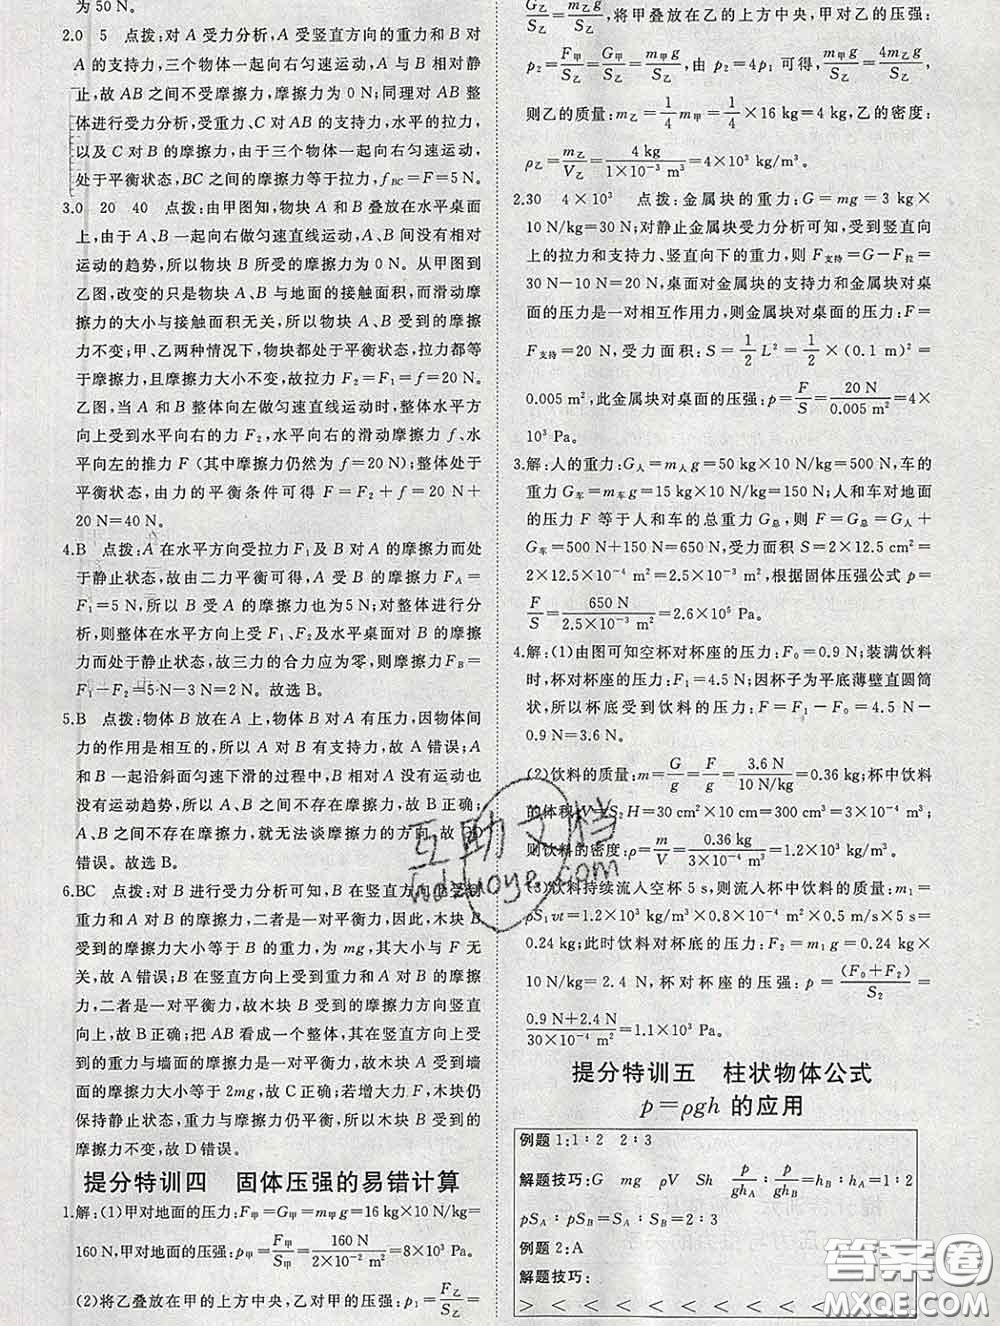 为 50 N。
2.0 5 点拨:对 A 受力分析,A 受竖直方向的重力和 B 对
A 的支持力,三个物体一起向右匀速运动,A 与 B 相对静
止,故 AB 之间不受摩擦力,摩擦力为 0 N;同理对 AB 整
体进行受力分析,受重力、C 对 AB 的支持力,水平的拉力,
以及 C 对 B 的摩擦力,由于三个物体一起向右匀速运动,
处于平衡状态,BC 之间的摩擦力等于拉力,f_BC=F=5 N。
3.0 20 40 点拨:由甲图知,物块 A 和 B 叠放在水平桌面
上,由于 A、B 一起向右做匀速直线运动,A、B 间没有相对
运动的趋势,所以物块 B 所受的摩擦力为 0 N。从甲图到
乙图,改变的只是物块 A、B 与地面的接触面积,而滑动摩
擦力的大小与接触面积无关,所以物块 A、B 受到的摩擦
力不变;甲、乙两种情况下,物块都处于平衡状态,拉力都等
于摩擦力,且摩擦力大小不变,故拉力 F₂=F₁=f=20 N。
乙图,当 A 和 B 整体向左做匀速直线运动时,整体水平方
向上受到水平向右的力 F₂,水平向右的滑动摩擦力 f、水
平向左的推力 F (其中摩擦力仍然为 f=20 N);整体处于
平衡状态,由力的平衡条件可得 F=F₂+f=20 N+
20 N=40 N。
4.B 点拨:A 在水平方向受拉力 F₁及 B 对 A 的摩擦力而处
于静止状态,故由二力平衡可得,A 受 B 的摩擦力 F_A=
F₁=5 N,所以 B 受 A 的摩擦力也为5 N;对整体进行分
析,则整体在水平方向上受 F₁、F₂及水平桌面对 B 的摩擦
力而处于静止状态,故三力的合力应为零,则摩擦力 F_B=
F₁-F₂=5 N-3 N=2 N。故选 B。
5.B 点拨:物体 B 放在 A 上,物体 B 对 A 有压力,因物体间
力的作用是相互的,所以 A 对 B 有支持力,故 A 错误;A
和 B 一起沿斜面匀速下滑的过程中,相对没有运动也
没有运动趋势,所以之间不存在摩擦力,故 B 正确;
A、B 之间不存在摩擦力,就无法谈摩擦力的方向,故
错误。故选 B。
6.BC 点拨:对 B 进行受力分析可知,B 在竖直方向
重力和 A 对 B 的摩擦力,二者是一对平衡力,因此,木块 B
受到的摩擦力大小等于 B 的重力,为 mg,其大小与 F 无
关,故 A 错误;B 在竖直方向上受到重力和 A 对 B 的摩擦
力,二者是一对平衡力,故木块 B 受到的摩擦力方向竖直
向上,故 B 正确;把 AB 看成一个整体,其在竖直方向上受到
的重力与墙面的摩擦力是一对平衡力,故木块 A 受到墙
面的摩擦力大小等于2mg,故 C 正确;若增大力 F,木块仍
保持静止状态,重力与摩擦力仍平衡,所以木块 B 受到的
摩擦力不变,故 D 错误。
提分特训四 固体压强的易错计算
1.解:(1)甲对地面的压力:F甲=G甲=m甲g=16 kg×10 N/kg=
160 N,甲对地面的压强:p甲=F甲/S甲=160 N/(2×10⁻² m²)=8×10³ Pa。
(2)将乙叠放在甲的上方中央,乙对甲的压强:p₁=F乙/S乙=
G乙/S乙=m乙g/S乙,将甲叠放在乙的上方中央,甲对乙的压强:
p₂=F甲/S乙=G甲/S乙=m甲g/S乙,由 p₂=4p₁ 可得,m甲g/S乙=4m乙g/S乙,
则乙的质量:m乙=1/4 m甲=1/4×16 kg=4 kg,乙的密度:
ρ乙=m乙/V乙=4 kg/(1×10⁻³ m³)=4×10³ kg/m³。
2.30 4×10³ 点拨:金属块的重力:G=mg=3 kg×
10 N/kg=30 N;对静止金属块受力分析可知,受到竖直向
上的拉力和支持力、竖直向下的重力,则 F支持=G-F拉=
30 N-10 N=20 N,桌面对金属块的支持力和金属块对桌
面的压力是一对相互作用力,则金属块对桌面的压力:F=
F支持=20 N,受力面积:S=1/2 L²=1/2×(0.1 m)²=
0.005 m²,此金属块对桌面的压强:p=F/S=20 N/0.005 m²=4×
10³ Pa。
3.解:人的重力:G人=m人g=50 kg×10 N/kg=500 N,车的
重力 G车=m车g=15 kg×10 N/kg=150 N;人和车对地面
的压力 F 等于人和车的总重力 G总,所以 F=G总=G人+
G车=500 N+150 N=650 N,受力面积 S=2×12.5 cm²=
2×12.5×10⁻⁴ m²=2.5×10⁻³ m²,根据固体压强公式 p=
F/S=650 N/(2.5×10⁻³ m²)=2.6×10⁵ Pa。
4.解:(1)由图可知空杯对杯座的压力:F₀=0.9 N;装满饮料
时,杯对杯座的压力:F₁=4.5 N;因杯子为平底薄壁直圆筒
状,所以杯底受到饮料的压力:F=F₁-F₀=4.5 N-
0.9 N=3.6 N。
(2)饮料的质量:m=G/g=F/g=3.6 N/(10 N/kg)=0.36 kg;杯中饮料
的体积:V=S₂H=30 cm²×10 cm=300 cm³=3×10⁻⁴ m³,
则饮料的密度:ρ=m/V=0.36 kg/(3×10⁻⁴ m³)=1.2×10³ kg/m³。
(3)饮料持续流入空杯 5 s,则流入杯中饮料的质量:m₁=
ρS₁vt=1.2×10³ kg/m³×0.8×10⁻⁴ m²×0.5 m/s×5 s=
0.24 kg;此时饮料对杯底的压力:F₂=m₁g=0.24 kg×
10 N/kg=2.4 N,杯对杯座的压强:p=(F₀+F₂)/S₂=
(0.9 N+2.4 N)/(30×10⁻⁴ m²)=1.1×10³ Pa。
提分特训五 柱状物体公式
p=ρgh 的应用
例题 1:1∶2 2∶3
解题技巧:G mg ρV Sh p/(ghA)∶p/(ghB)=hB∶hA=1∶2
pSA∶pSB=SA∶SB=2∶3
例题 2:A
解题技巧:
> < < < < < < < < <
互助文档
hdzuoye.com
答案圈
MXQE.COM